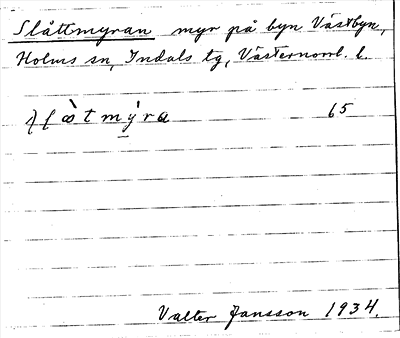 Slåttmyran myr på byn Västbyn,
Holms sn, Indals tg, Västernorrl. l.
65
Valter Jansson 1934.